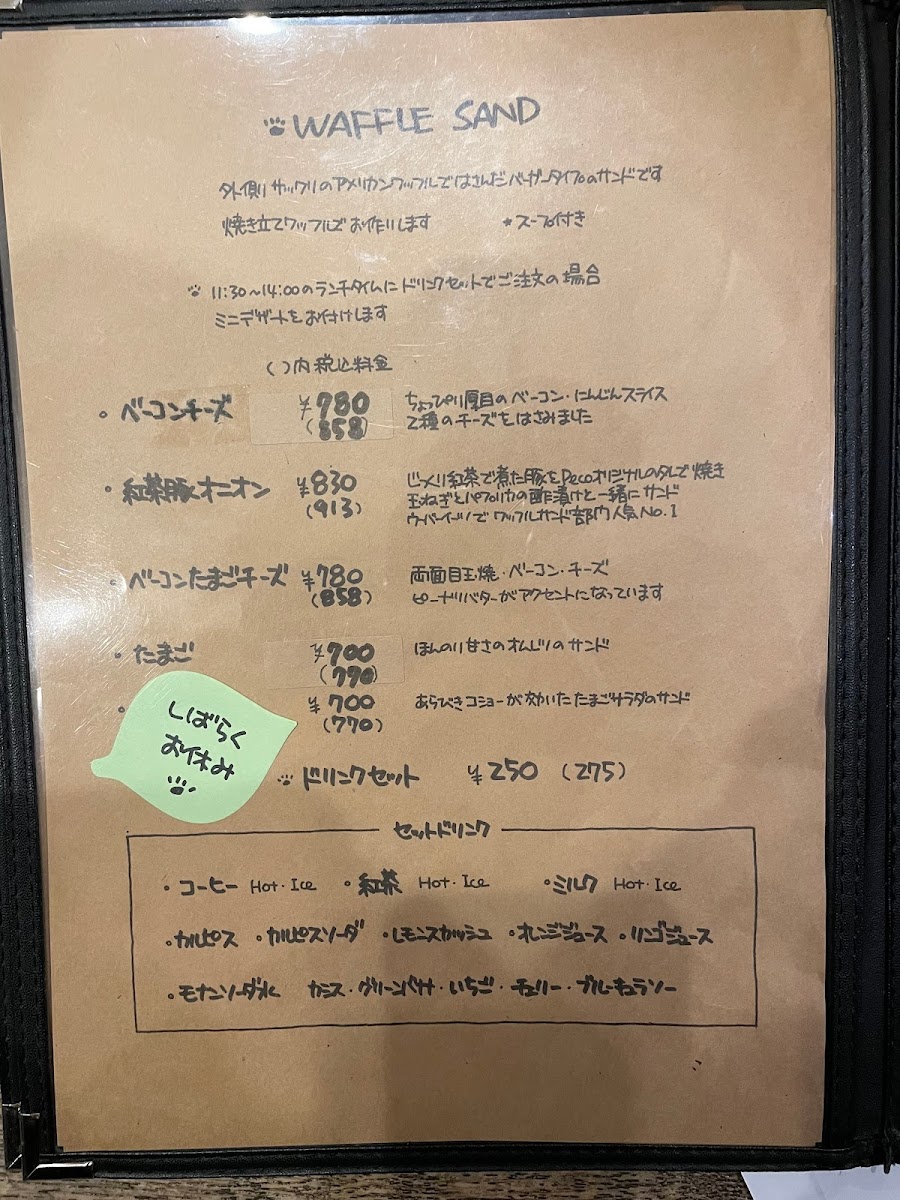 WAFFLE SAND
外側サックリのアメリカンワッフルではさんだバーガータイプのサンドです
焼き立てワッフルでお作りします ★スープ付き
11:30~14:00のランチタイムにドリンクセットでご注文の場合
ミニデザートをお付けします
( )内税込料金
・ベーコンチーズ ¥780 ちょっぴり厚目のベーコン・にんじんスライス
(858) 2種のチーズをはさみました
・紅茶豚オニオン ¥830 じっくり紅茶で煮た豚をPecoオリジナルのタレで焼き
(913) 玉ねぎとパプリカの酢漬けと一緒にサンド
ウーバーイーツでワッフルサンド部門人気No.1
・ベーコンたまごチーズ ¥780 両面目玉焼・ベーコン・チーズ
(858) ピーナツバターがアクセントになっています
・たまご ¥700 ほんのり甘さのオムレツのサンド
(770)
・ ¥700 あらびきコショーが効いたたまごサラダのサンド
(770)
しばらく
お休み
ドリンクセット ¥250 (275)
セットドリンク
・コーヒー Hot・Ice ・紅茶 Hot・Ice ・ミルク Hot・Ice
・カルピス ・カルピスソーダ ・レモンスカッシュ ・オレンジジュース ・リンゴジュース
・モナンソーダ水 カシス・グリーンバナナ・いちご・チェリー・ブルーキュラソー